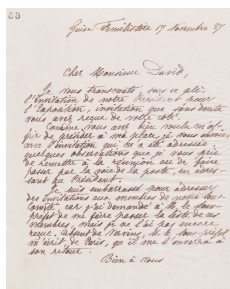 Guise Familistère 17 Novembre 87
Cher Monsieur David,
Je vous transmets, sous ce pli,
l'invitation de notre Président pour
l'apportion, invitation que sans doute
vous avez reçue de votre côté.
Comme vous avez bien voulu m'of-
frir de présider à ma place, je vous envoie
avec l'invitation qui m'a été adressée
quelques observations que je vous prie
de remettre à la réunion ou de faire
passer par la voie de la poste, en adres-
sant au Président.
Je suis embarrassé pour adresser
des invitations aux membres de notre sous-
Comité, car j'ai demandé à M. le sous-
préfet de me faire passer la liste de ces
membres, mais je ne l'ai pas encore
reçue. Absent de Vervins, M. le sous-préfet
m'écrit, de Paris, qu'il me l'enverra à
son retour.
Bien à vous